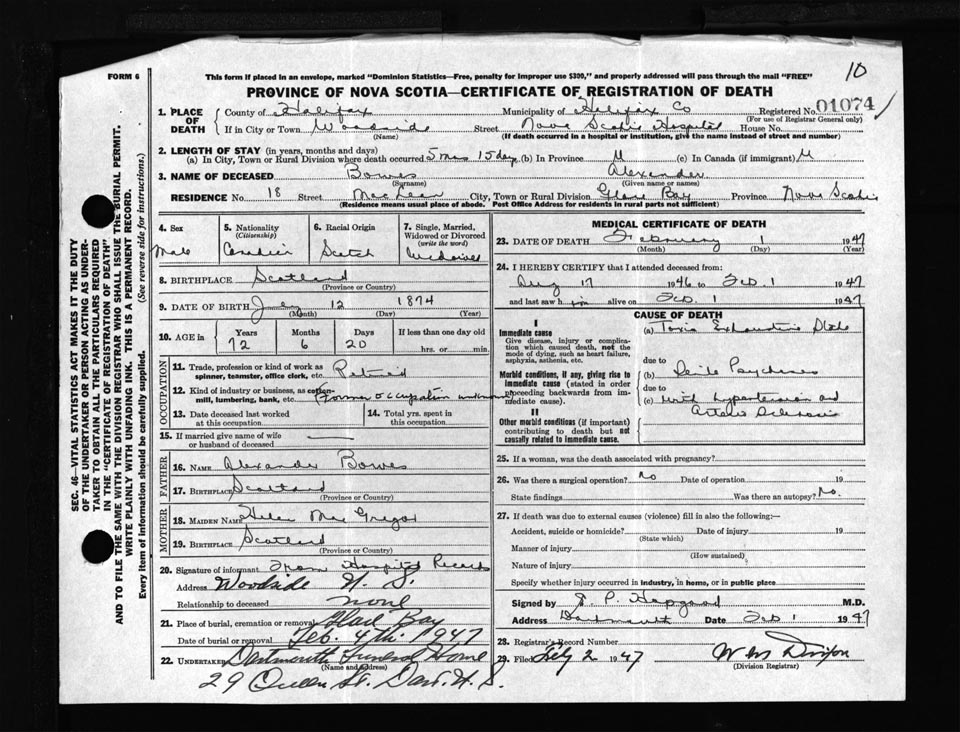 10
FORM 6
This form if placed in an envelope, marked "Dominion Statistics—Free, penalty for improper use $300," and properly addressed will pass through the mail "FREE"
PROVINCE OF NOVA SCOTIA—CERTIFICATE OF REGISTRATION OF DEATH
1. PLACE OF DEATH
County of Halifax Municipality of Halifax Co Registered No. 01074
(For use of Registrar General only)
If in City or Town Woodside Street Nova Scotia Hospital House No.
(Name) (If death occurred in a hospital or institution, give the name instead of street and number)
2. LENGTH OF STAY (in years, months and days)
(a) In City, Town or Rural Division where death occurred 5 mos 15 days (b) In Province (c) In Canada (if immigrant)
3. NAME OF DECEASED Bowes Alexander
(Surname) (Given name or names)
RESIDENCE No. 18 Street MacLean City, Town or Rural Division Glace Bay Province Nova Scotia
(Residence means usual place of abode. Post Office Address for residents in rural parts not sufficient)
4. Sex
Male
5. Nationality
(Citizenship)
Canadian
6. Racial Origin
Scotch
7. Single, Married, Widowed or Divorced
(write the word)
8. BIRTHPLACE Scotland
(Province or Country)
9. DATE OF BIRTH July 12 1874
(Month) (Day) (Year)
10. AGE in Years Months Days If less than one day old
72 6 20 hrs. or min.
OCCUPATION
11. Trade, profession or kind of work as
spinner, teamster, office clerk, etc. Retired
12. Kind of industry or business, as cotton-
mill, lumbering, bank, etc. (Former occupation unknown)
13. Date deceased last worked
at this occupation
14. Total yrs. spent in
this occupation
15. If married give name of wife
or husband of deceased —
FATHER
16. NAME Alexander Bowes
17. BIRTHPLACE Scotland
(Province or Country)
MOTHER
18. MAIDEN NAME Helen MacGregor
19. BIRTHPLACE Scotland
(Province or Country)
20. Signature of informant From Hospital Records
Address Woodside N. S.
Relationship to deceased none
21. Place of burial, cremation or removal Glace Bay
Date of burial or removal Feb. 4th. 1947
22. UNDERTAKER Dartmouth Funeral Home
(Name and address)
29 Queen St. Dart. N. S.
MEDICAL CERTIFICATE OF DEATH
23. DATE OF DEATH February 1 1947
(Month) (Day) (Year)
24. I HEREBY CERTIFY that I attended deceased from:
Aug 17 1946 to Feb. 1 1947
and last saw him alive on Feb. 1 1947
CAUSE OF DEATH
I
Immediate cause
Give disease, injury or complica-
tion which caused death, not the
mode of dying, such as heart failure,
asphyxia, asthenia, etc.
(a) Toxic Exhaustive State
due to
Morbid conditions, if any, giving rise to
immediate cause (stated in order
proceeding backwards from im-
mediate cause).
(b) Senile Psychoses
due to
(c) with hypertension and
Arterio Sclerosis
II
Other morbid conditions (if important)
contributing to death but not
causally related to immediate cause.
25. If a woman, was the death associated with pregnancy?
26. Was there a surgical operation? No Date of operation 19
State findings Was there an autopsy? No.
27. If death was due to external causes (violence) fill in also the following:—
Accident, suicide or homicide? Date of injury 19
(State which)
Manner of injury
(How sustained)
Nature of injury
Specify whether injury occurred in industry, in home, or in public place
Signed by E. P. Hapgood M.D.
Address Dartmouth Date Feb 1 1947
28. Registrar's Record Number
29. Filed Feby 2 1947
(Division Registrar)
SEC. 46—VITAL STATISTICS ACT MAKES IT THE DUTY
OF THE UNDERTAKER OR PERSON ACTING AS UNDER-
TAKER TO OBTAIN ALL THE PARTICULARS REQUIRED
IN THE "CERTIFICATE OF REGISTRATION OF DEATH"
AND TO FILE THE SAME WITH THE DIVISION REGISTRAR WHO SHALL ISSUE THE BURIAL PERMIT.
WRITE PLAINLY WITH UNFADING INK. THIS IS A PERMANENT RECORD.
Every item of information should be carefully supplied. (See reverse side for instructions.)